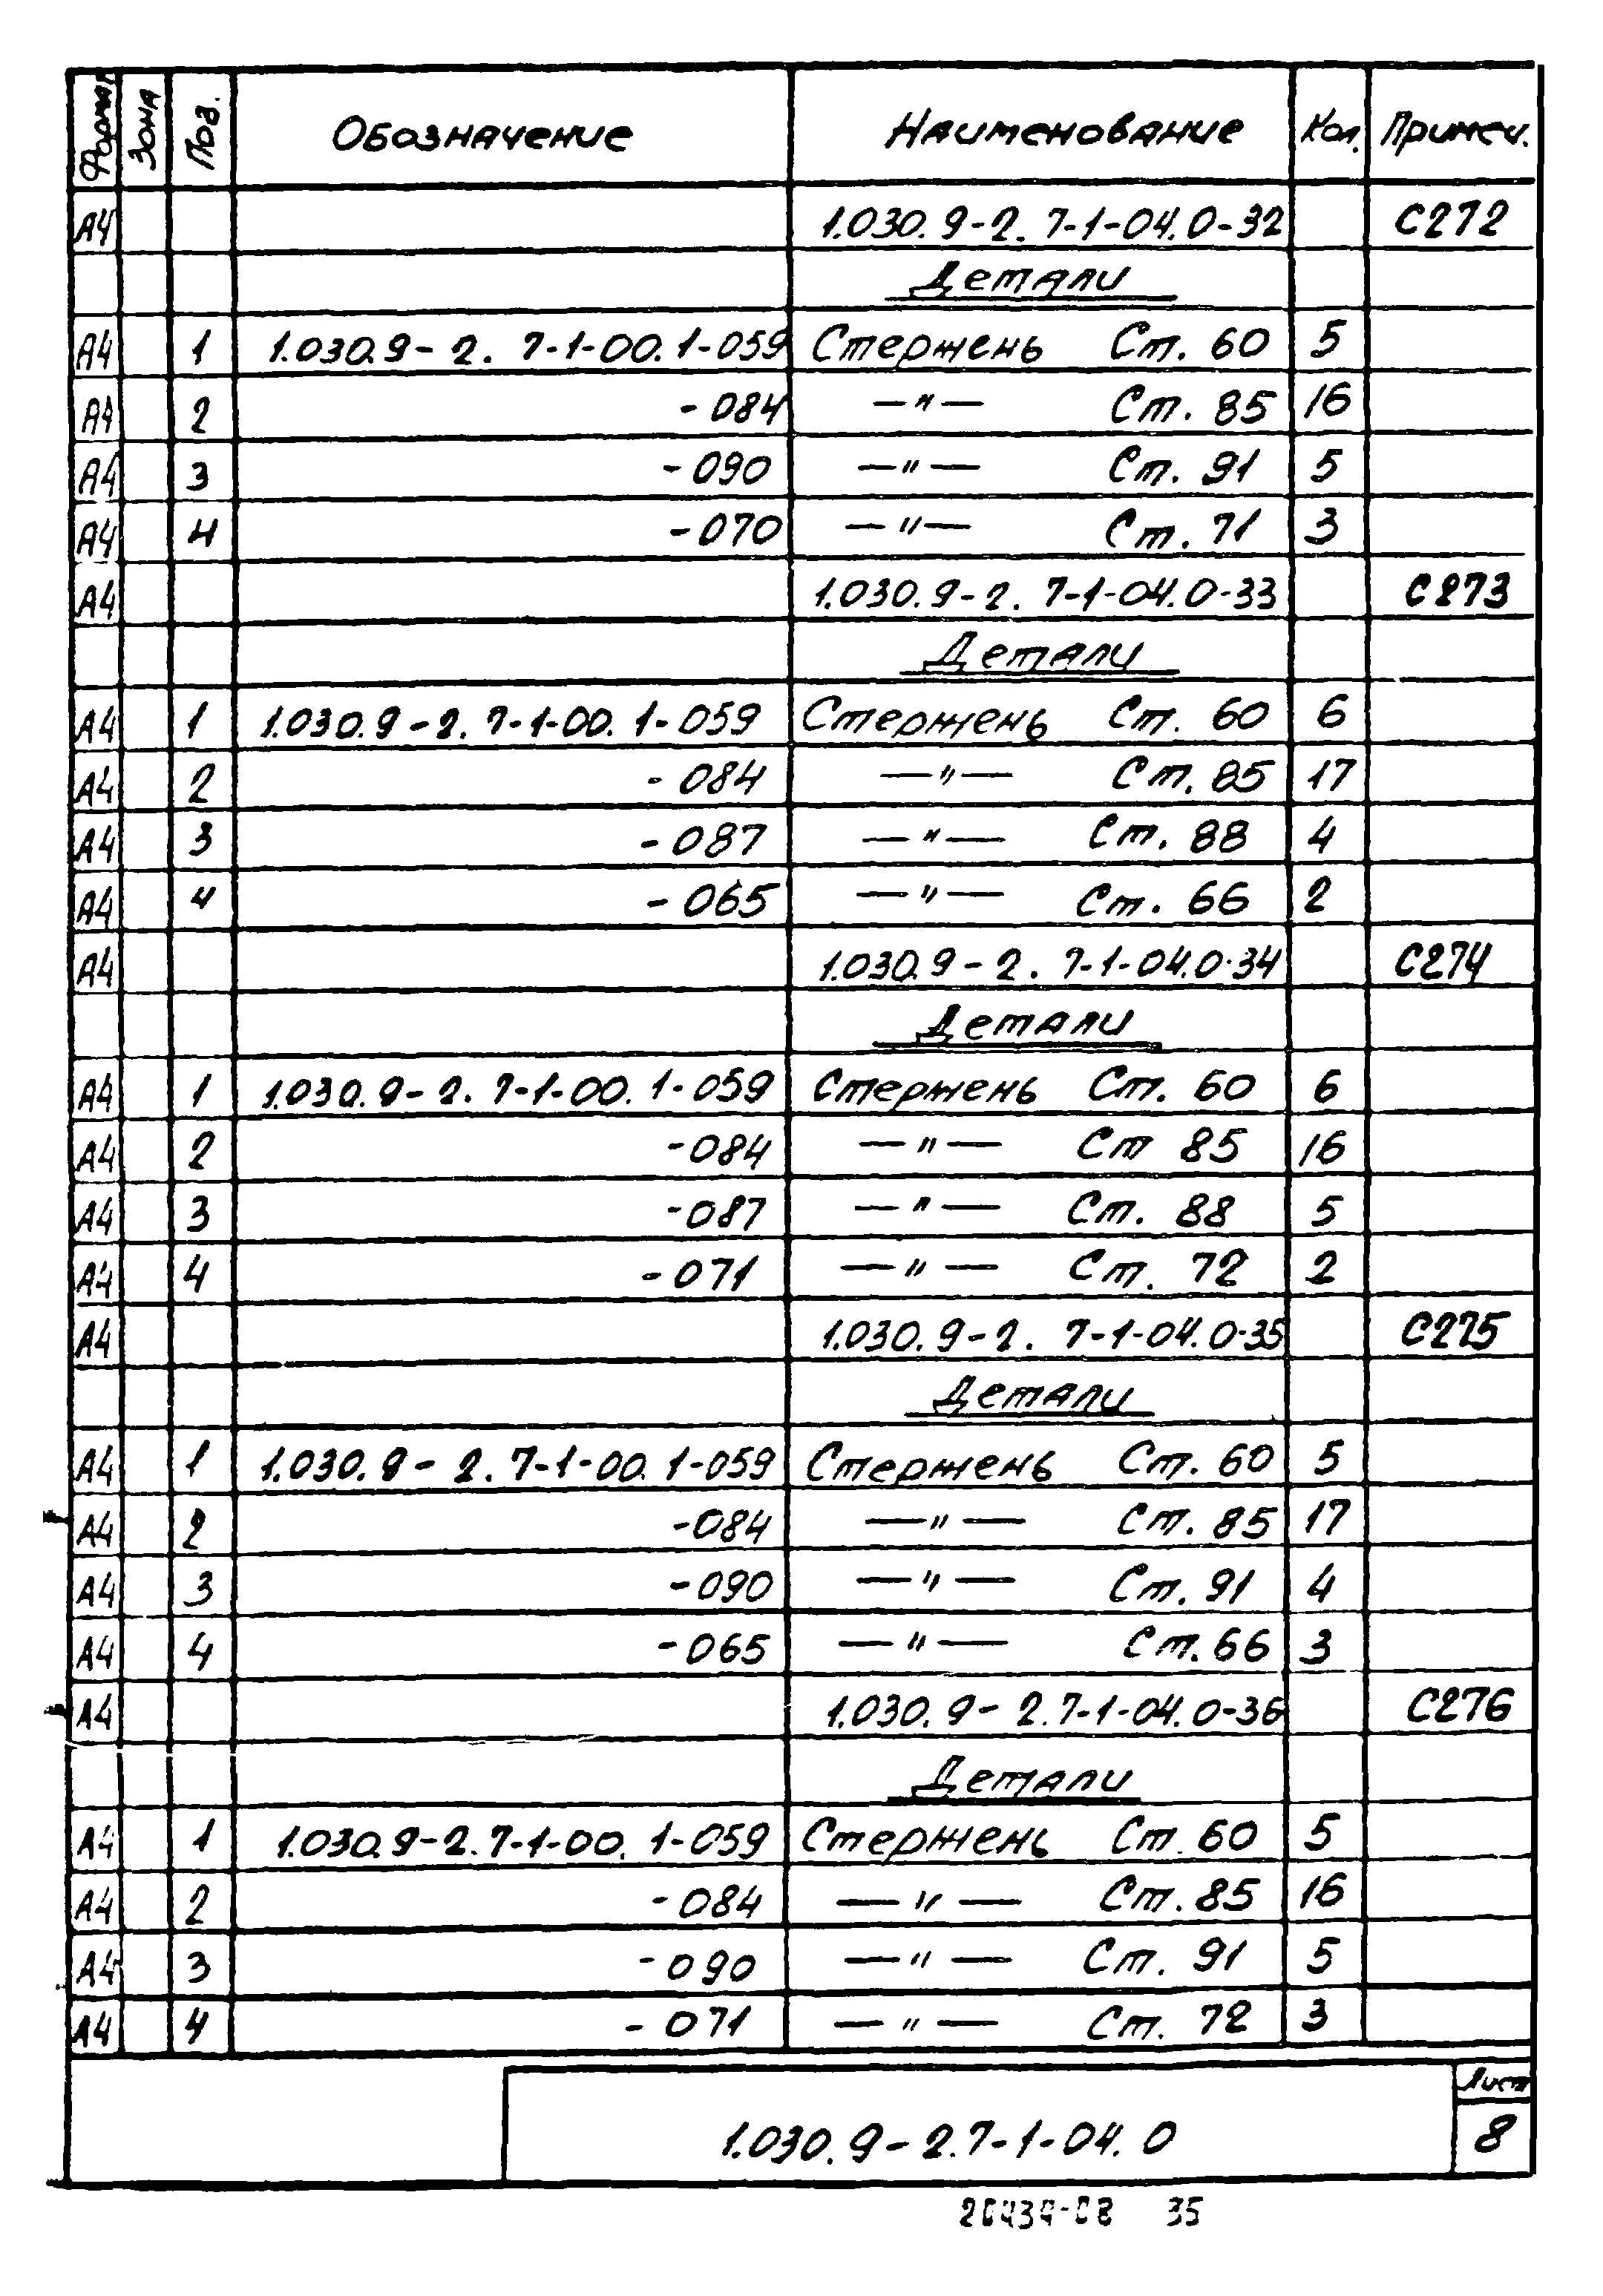 Формат Зона Поз. Обозначение Наименование Кол. Примеч.
А4 1.030.9-2. 7-1-04.0-32 С272
Детали
А4 1 1.030.9-2. 7-1-00.1-059 Стержень Ст. 60 5
А4 2 -084 —"— Ст. 85 16
А4 3 -090 —"— Ст. 91 5
А4 4 -070 —"— Ст. 71 3
А4 1.030.9-2. 7-1-04.0-33 С273
Детали
А4 1 1.030.9-2. 7-1-00.1-059 Стержень Ст. 60 6
А4 2 -084 —"— Ст. 85 17
А4 3 -087 —"— Ст. 88 4
А4 4 -065 —"— Ст. 66 2
А4 1.030.9-2. 7-1-04.0-34 С274
Детали
А4 1 1.030.9-2. 7-1-00.1-059 Стержень Ст. 60 6
А4 2 -084 —"— Ст 85 16
А4 3 -087 —"— Ст. 88 5
А4 4 -071 —"— Ст. 72 2
А4 1.030.9-2. 7-1-04.0-35 С275
Детали
А4 1 1.030.9-2. 7-1-00.1-059 Стержень Ст. 60 5
А4 2 -084 —"— Ст. 85 17
А4 3 -090 —"— Ст. 91 4
А4 4 -065 —"— Ст. 66 3
А4 1.030.9-2.7-1-04.0-36 С276
Детали
А4 1 1.030.9-2.7-1-00.1-059 Стержень Ст. 60 5
А4 2 -084 —"— Ст. 85 16
А4 3 -090 —"— Ст. 91 5
А4 4 -071 —"— Ст. 72 3
Лист
1.030.9-2.7-1-04.0 8
35